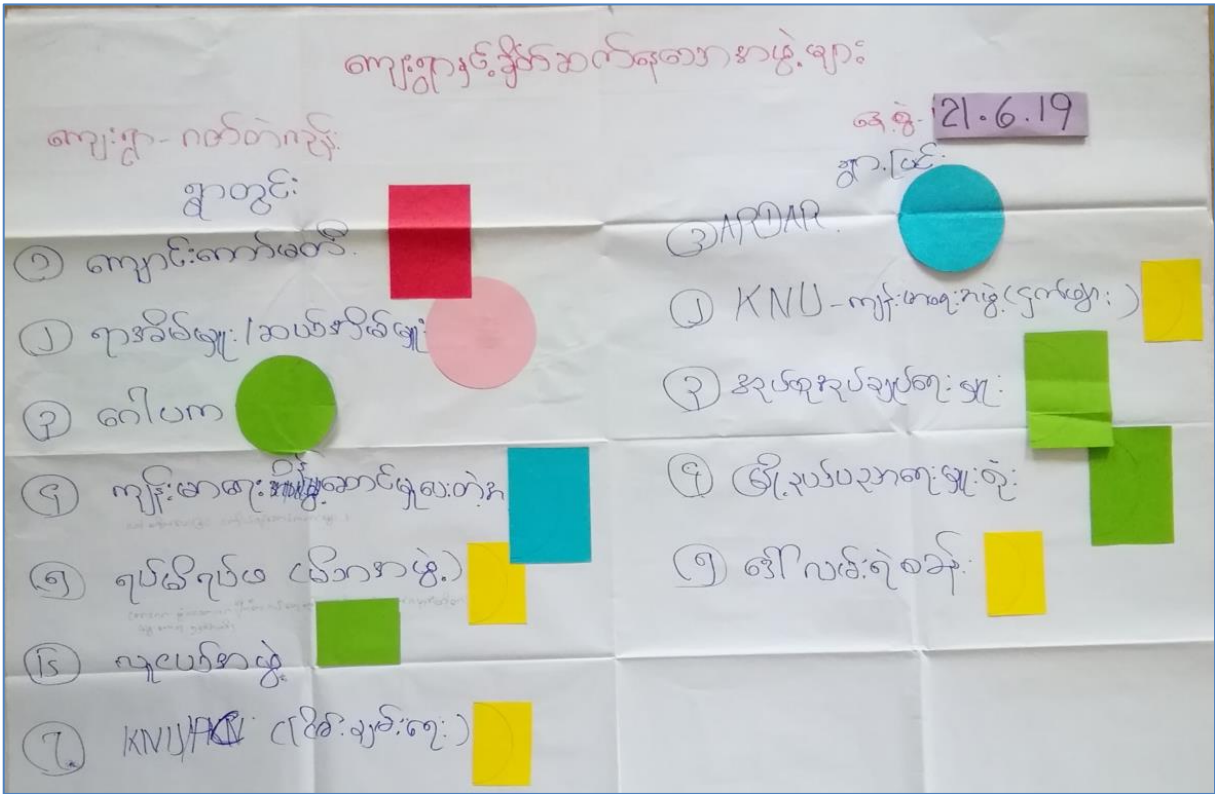 ကျေးရွာနှင့်ချိတ်ဆက်နေသောအဖွဲ့များ
ကျေးရွာ-
နေ့စွဲ- 21.6.19
ရွာတွင်း
၁ ကျောင်းကော်မတီ
၂ ရာအိမ်မှူး/ဆယ်အိမ်မှူး
၃ ဂေါပက
၄ ကျန်းမာရေး စောင့်ရှောက်မှုပေးတဲ့အ
၅ ရပ်မိရပ်ဖ (မိဘအဖွဲ့)
၆ လူငယ်အဖွဲ့
၇ KNU (ငြိမ်းချမ်းရေး)
ရွာပြင်
၁ ARDAR
၂ KNU-ကျန်းမာရေးအဖွဲ့(ငှက်ဖျား)
၃ အုပ်စုအုပ်ချုပ်ရေးမှူး
၄ မြို့နယ်ပညာရေးမှူးရုံး
၅ ရဲစခန်း